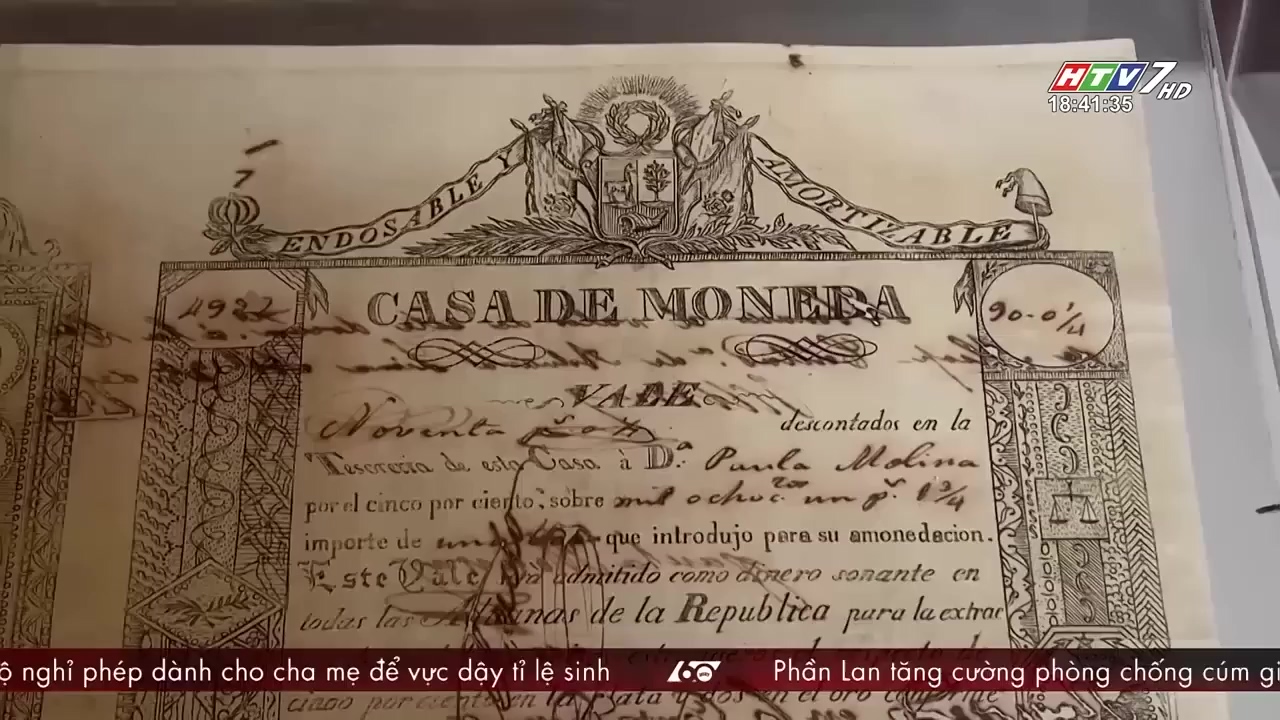 HTV7 HD
18:41:35
ENDOSABLE Y AMORTIZABLE
4922 CASA DE MONEDA 90-0¼
VADE
Noventa descontados en la
Tesoreria de esta Casa à D.ª Paula Molina
por el cinco por ciento, sobre mil ochoc.tos un p.s 1¾
importe de una que introdujo para su amonedacion.
Este Vale admitido como dinero sonante en
todas las Aduanas de la Republica para la extrac
cinco por ciento en la plata y dos en el oro
nghỉ phép dành cho cha mẹ để vực dậy tỉ lệ sinh 60 Phần Lan tăng cường phòng chống cúm gi